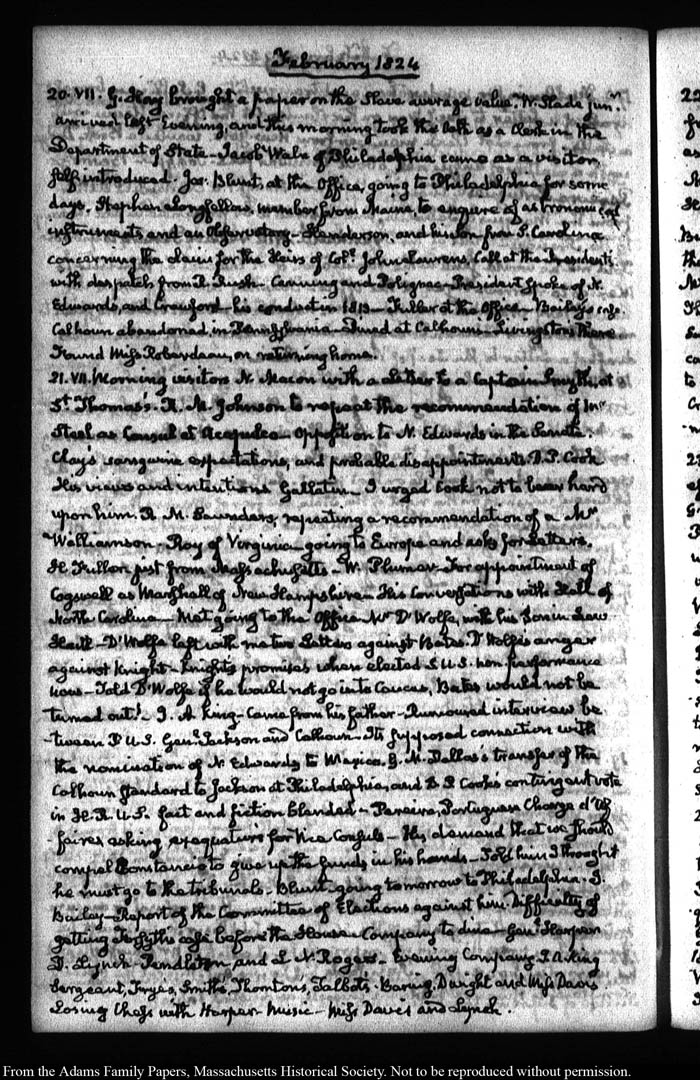 February 1824
20. VII. G. Hay brought a paper on the Slave average value. W. Slade junr.
arrived last Evening, and this morning took the Oath as a Clerk in the
Department of State - Jacob Waln of Philadelphia came as a visitor,
self introduced. Jos. Blunt, at the Office, going to Philadelphia for some
days. Stephen Longfellow, member from Maine, to enquire of astronomical
instruments and an Observatory - Henderson, and his son from S. Carolina
concerning the claim for the Heirs of Coll. John Laurens. Call at the Presidents
with despatch from R. Rush - Canning and Polignac - President spoke of N.
Edwards, and Crawford - his conduct in 1813 - Fuller at the Office - Bailey's case.
Calhoun abandoned in Pennsylvania - Dined at Calhoun's - Livingstons there
Found Miss Roberdeau, on returning home.
21. VII. Morning visitors N. Macon with a Letter to a Captain Smyth, at
St. Thomas's. R. M. Johnson to repeat the recommendation of Mr
Steel as Consul at Acapulco - Opposition to N. Edwards in the Senate.
Clay's sanguine expectations, and probable disappointments. D. P. Cook
His views and intentions Gallatin - I urged Cook not to bear hard
upon him. R. M. Saunders, repeating a recommendation of a Mr
Williamson - Roy of Virginia going to Europe and asks for Letters.
H. Fuller just from Massachusetts - W. Plumer - For appointment of
Cogswell as Marshall of New Hampshire - His Conversations with Hall of
North Carolina - Met going to the Office Mr D'Wolfe, with his Son in Law
- D'Wolfe left with me two Letters against Bates. D'Wolfe's anger
against Knight - Knights promises when elected S.U.S. non performance
- Told D'Wolfe if he would not go into Caucus, Bates would not be
turned out! - J. A. King - Came from his father - Rumoured interview be
-tween Genl. Jackson and Calhoun - Its supposed connection with
the nomination of N. Edwards to Mexico. G. M. Dallas's transfer of the
Calhoun standard to Jackson at Philadelphia, and D P Cook's contingent vote
in H.R. U.S. fact and fiction blended - Pereira, Portuguese Charge d'Af
-faires asking exequaturs for Vice Consuls - His demand that we should
compel Constancio to give up the funds in his hands - Told him I thought
he must go to the tribunals - Blunt - going tomorrow to Philadelphia. J.
Bailey - Report of the Committee of Elections against him. Difficulty of
getting Forsyths case before the House - Company to dine - Genl. Harper
D. Lynch - Pendleton, and L N. Rogers - Evening Company J. A. King
Sergeant, Fryes, Smiths, Thorntons, Talbots. Baring, Dwight and Miss Davis
Losing Chess with Harper - Music - Miss Davis and Lynch.
From the Adams Family Papers, Massachusetts Historical Society. Not to be reproduced without permission.